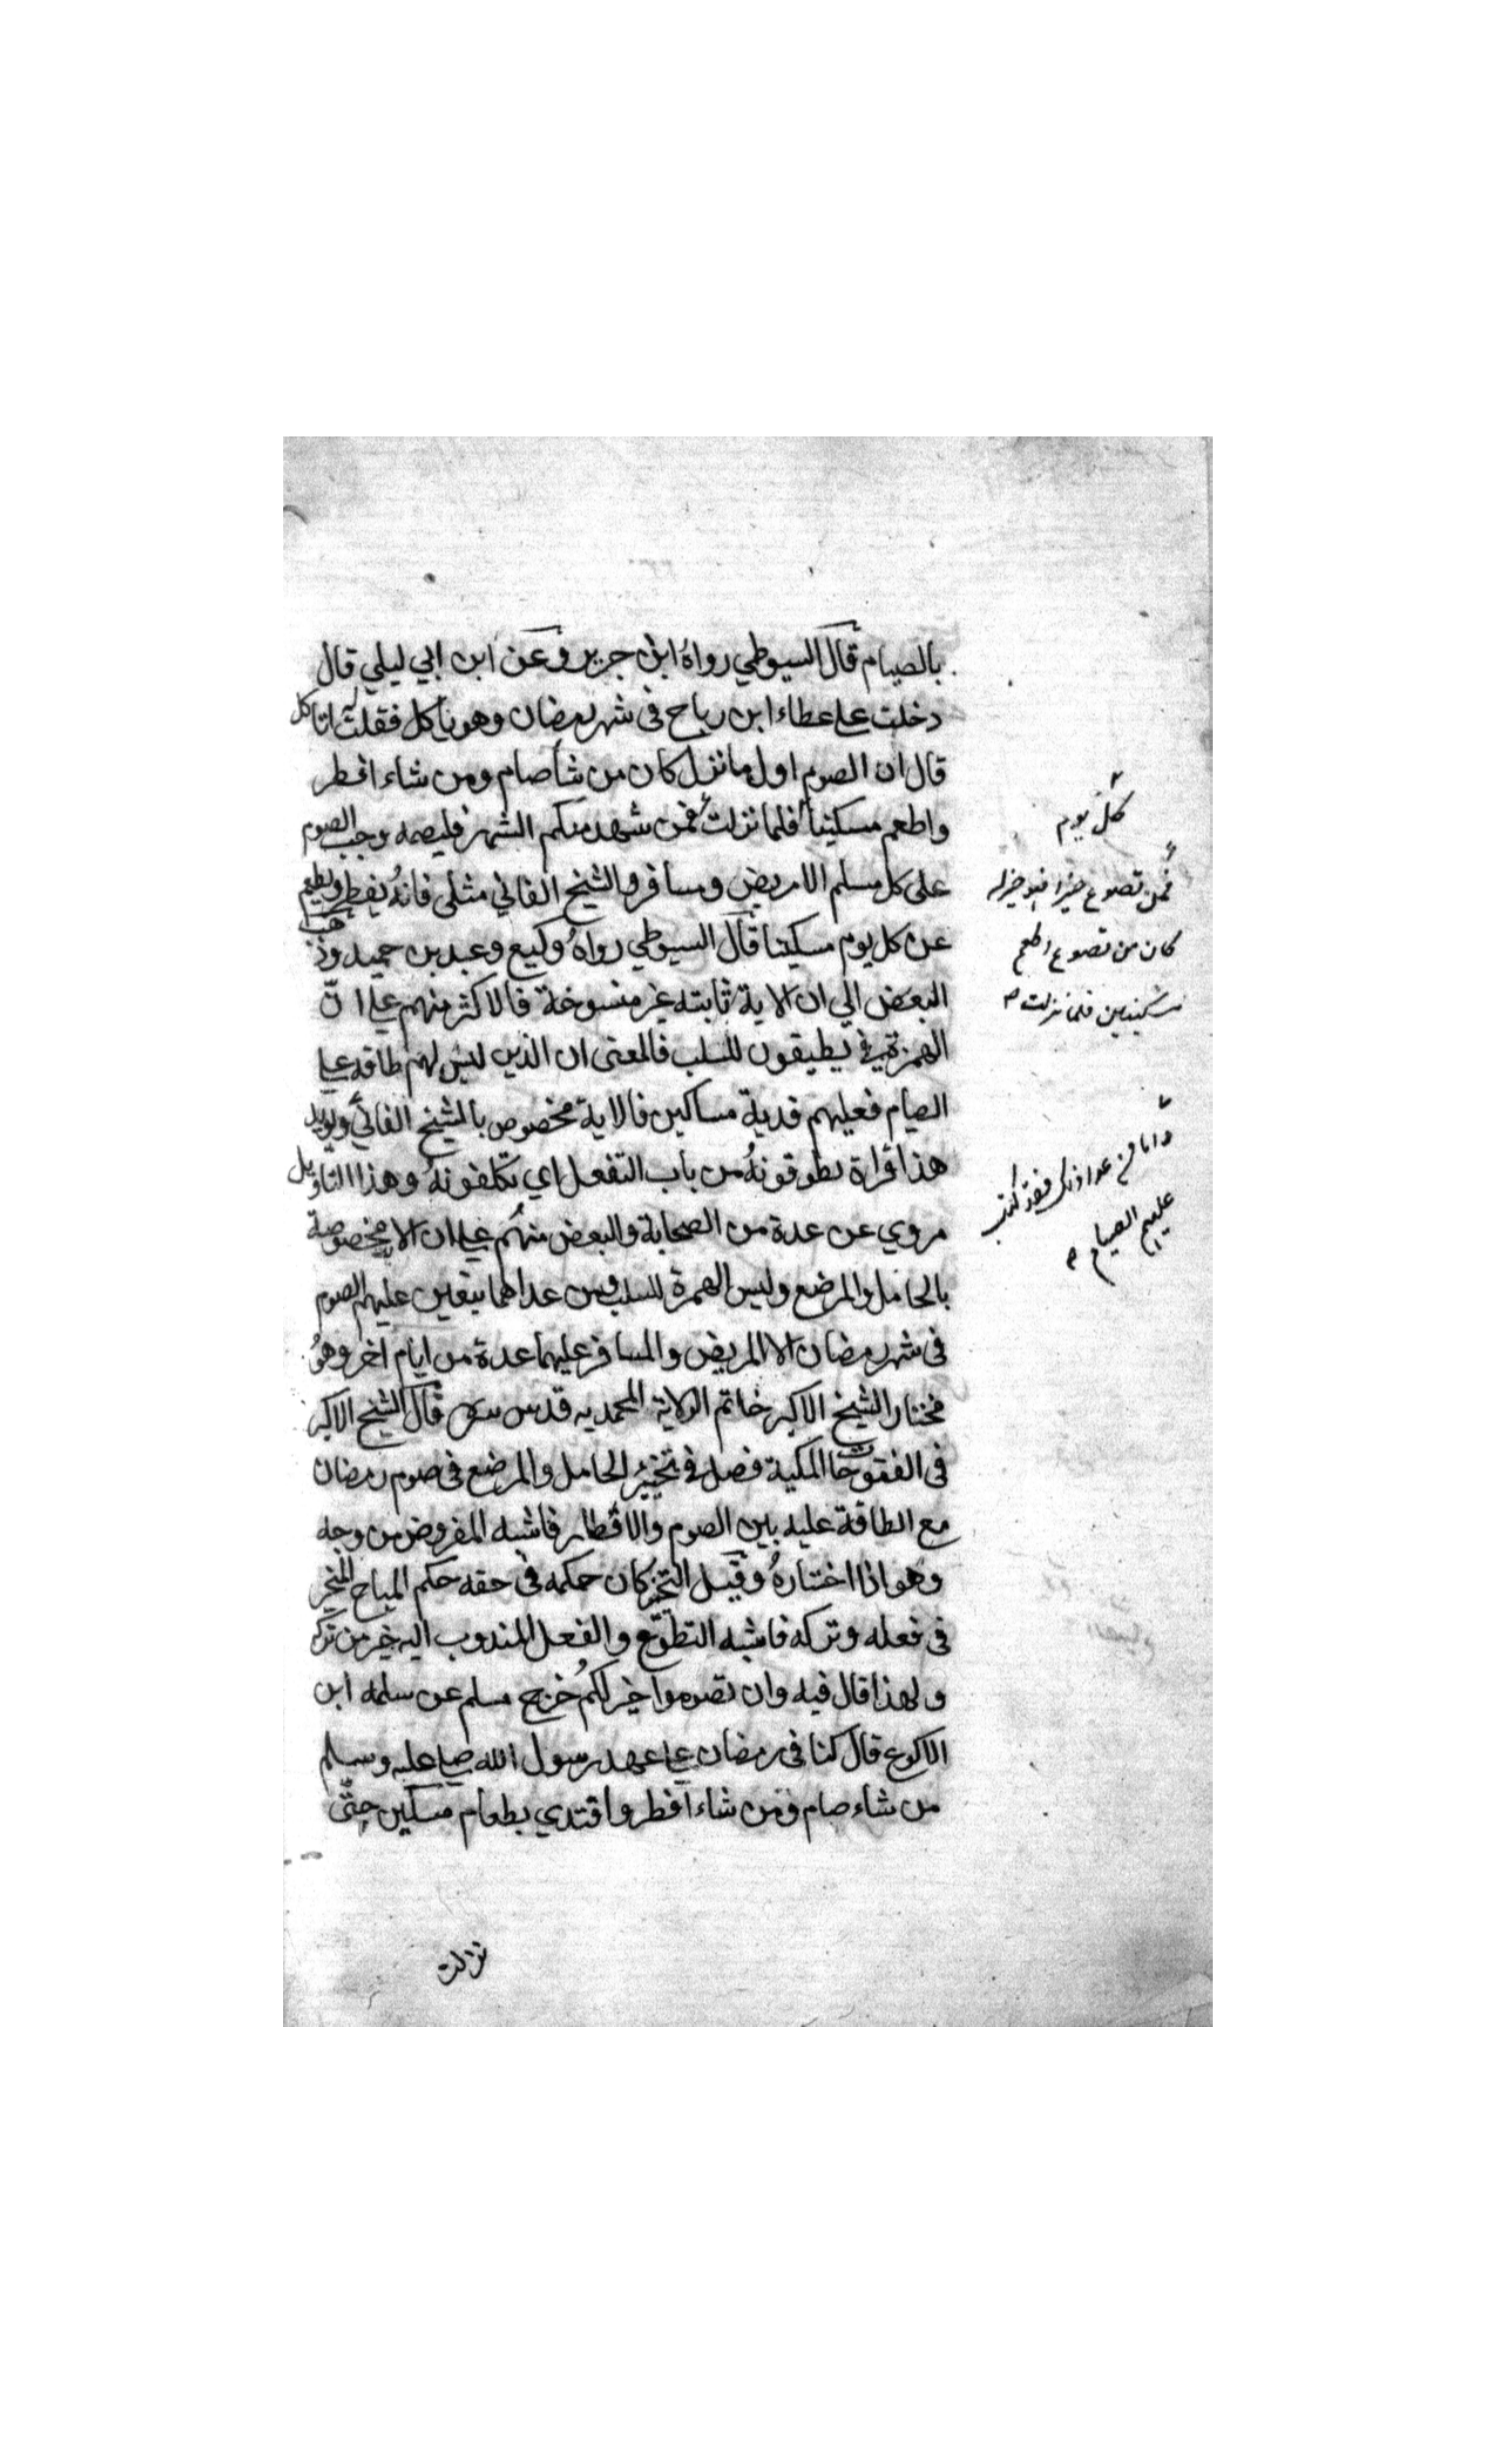 بالصيام قال السيوطي رواه ابن جرير وعن ابن ابي ليلي قال
دخلت على عطاء ابن رباح فى شهر رمضان وهو ياكل فقلت اتاكل
قال ان الصوم اول ما نزل كان من شأ صام ومن شاء افطر
واطعم مسكينا فلما نزلت فمن شهد منكم الشهر فليصمه وجب الصوم
على كل مسلم الا مريض ومسافر والشيخ الفاني مثلى فانه يفطر ويطعم
عن كل يوم مسكينا قال السيوطي رواه وكيع وعبد بن حميد وذهب
البعض الي ان الاية ثابته غير منسوخة فالاكثر منهم على انّ
الهمزة في يطيقون للسلب فالمعنى ان الذين ليس لهم طاقه على
الصيام فعليهم فدية مساكين فالاية مخصوص بالشيخ الفاني ويويد
هذا قراة يطوقونه من باب التفعل اي يتكلفونه وهذا التاويل
مروي عن عدة من الصحابة والبعض منهم على ان الاية مخصوصة
بالحامل والمرضع وليس الهمزة للسلب ومن عداهما يتعين عليهم الصوم
فى شهر رمضان الا المريض والمسافر عليهما عدة من ايام اخر وهو
مختار الشيخ الاكبر خاتم الولاية المحمديه قدس سره قال الشيخ الاكبر
فى الفتوحات المكية فصل في تخيير الحامل والمرضع فى صوم رمضان
مع الطاقة عليه بين الصوم والافطار فاشبه المفروض من وجه
وهو اذا اختاره وقبل التخير كان حكمه فى حقه حكم المباح المخير
فى فعله وتركه فاشبه التطوّع والفعل المندوب اليه خير من تركه
ولهذا قال فيه وان تصوموا خير لكم خرج مسلم عن سلمه ابن
الاكوع قال كنا فى رمضان على عهد رسول الله صلى عليه وسلم
من شاء صام ومن شاء افطر وافتدي بطعام مسكين حتّى
نزلت
كل يوم
فمن تطوع خيرا فهو خير له
كان من تطوع اطعم
مسكينين فلما نزلت
واما من عدا ذلك فقد كتب
عليهم الصيام